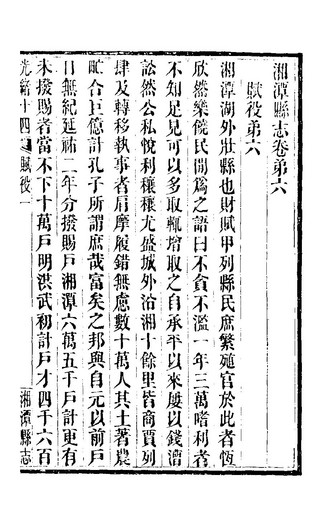 湘潭縣志卷第六
賦役第六
湘潭湖外壯縣也財賦甲列縣民庶繁殖官於此者恆
欣然樂饒民間爲之語曰不貪不濫一年三萬嗜利者
不知足見可以多取輒增取之自承平以來屢以錢漕
訟然公私悅利穰穰尤盛城外沿湘十餘里皆商賈列
肆及轉移執事者肩摩履錯無慮數十萬人其土著農
甿合巨億計孔子所謂庶哉富矣之邦與自元以前戸
口無紀延祐二年分撥賜戸湘潭六萬五千戸計更有
未撥賜者當不下十萬戸明洪武初計戸才四千六百
光緒十四 賦役一 湘潭縣志